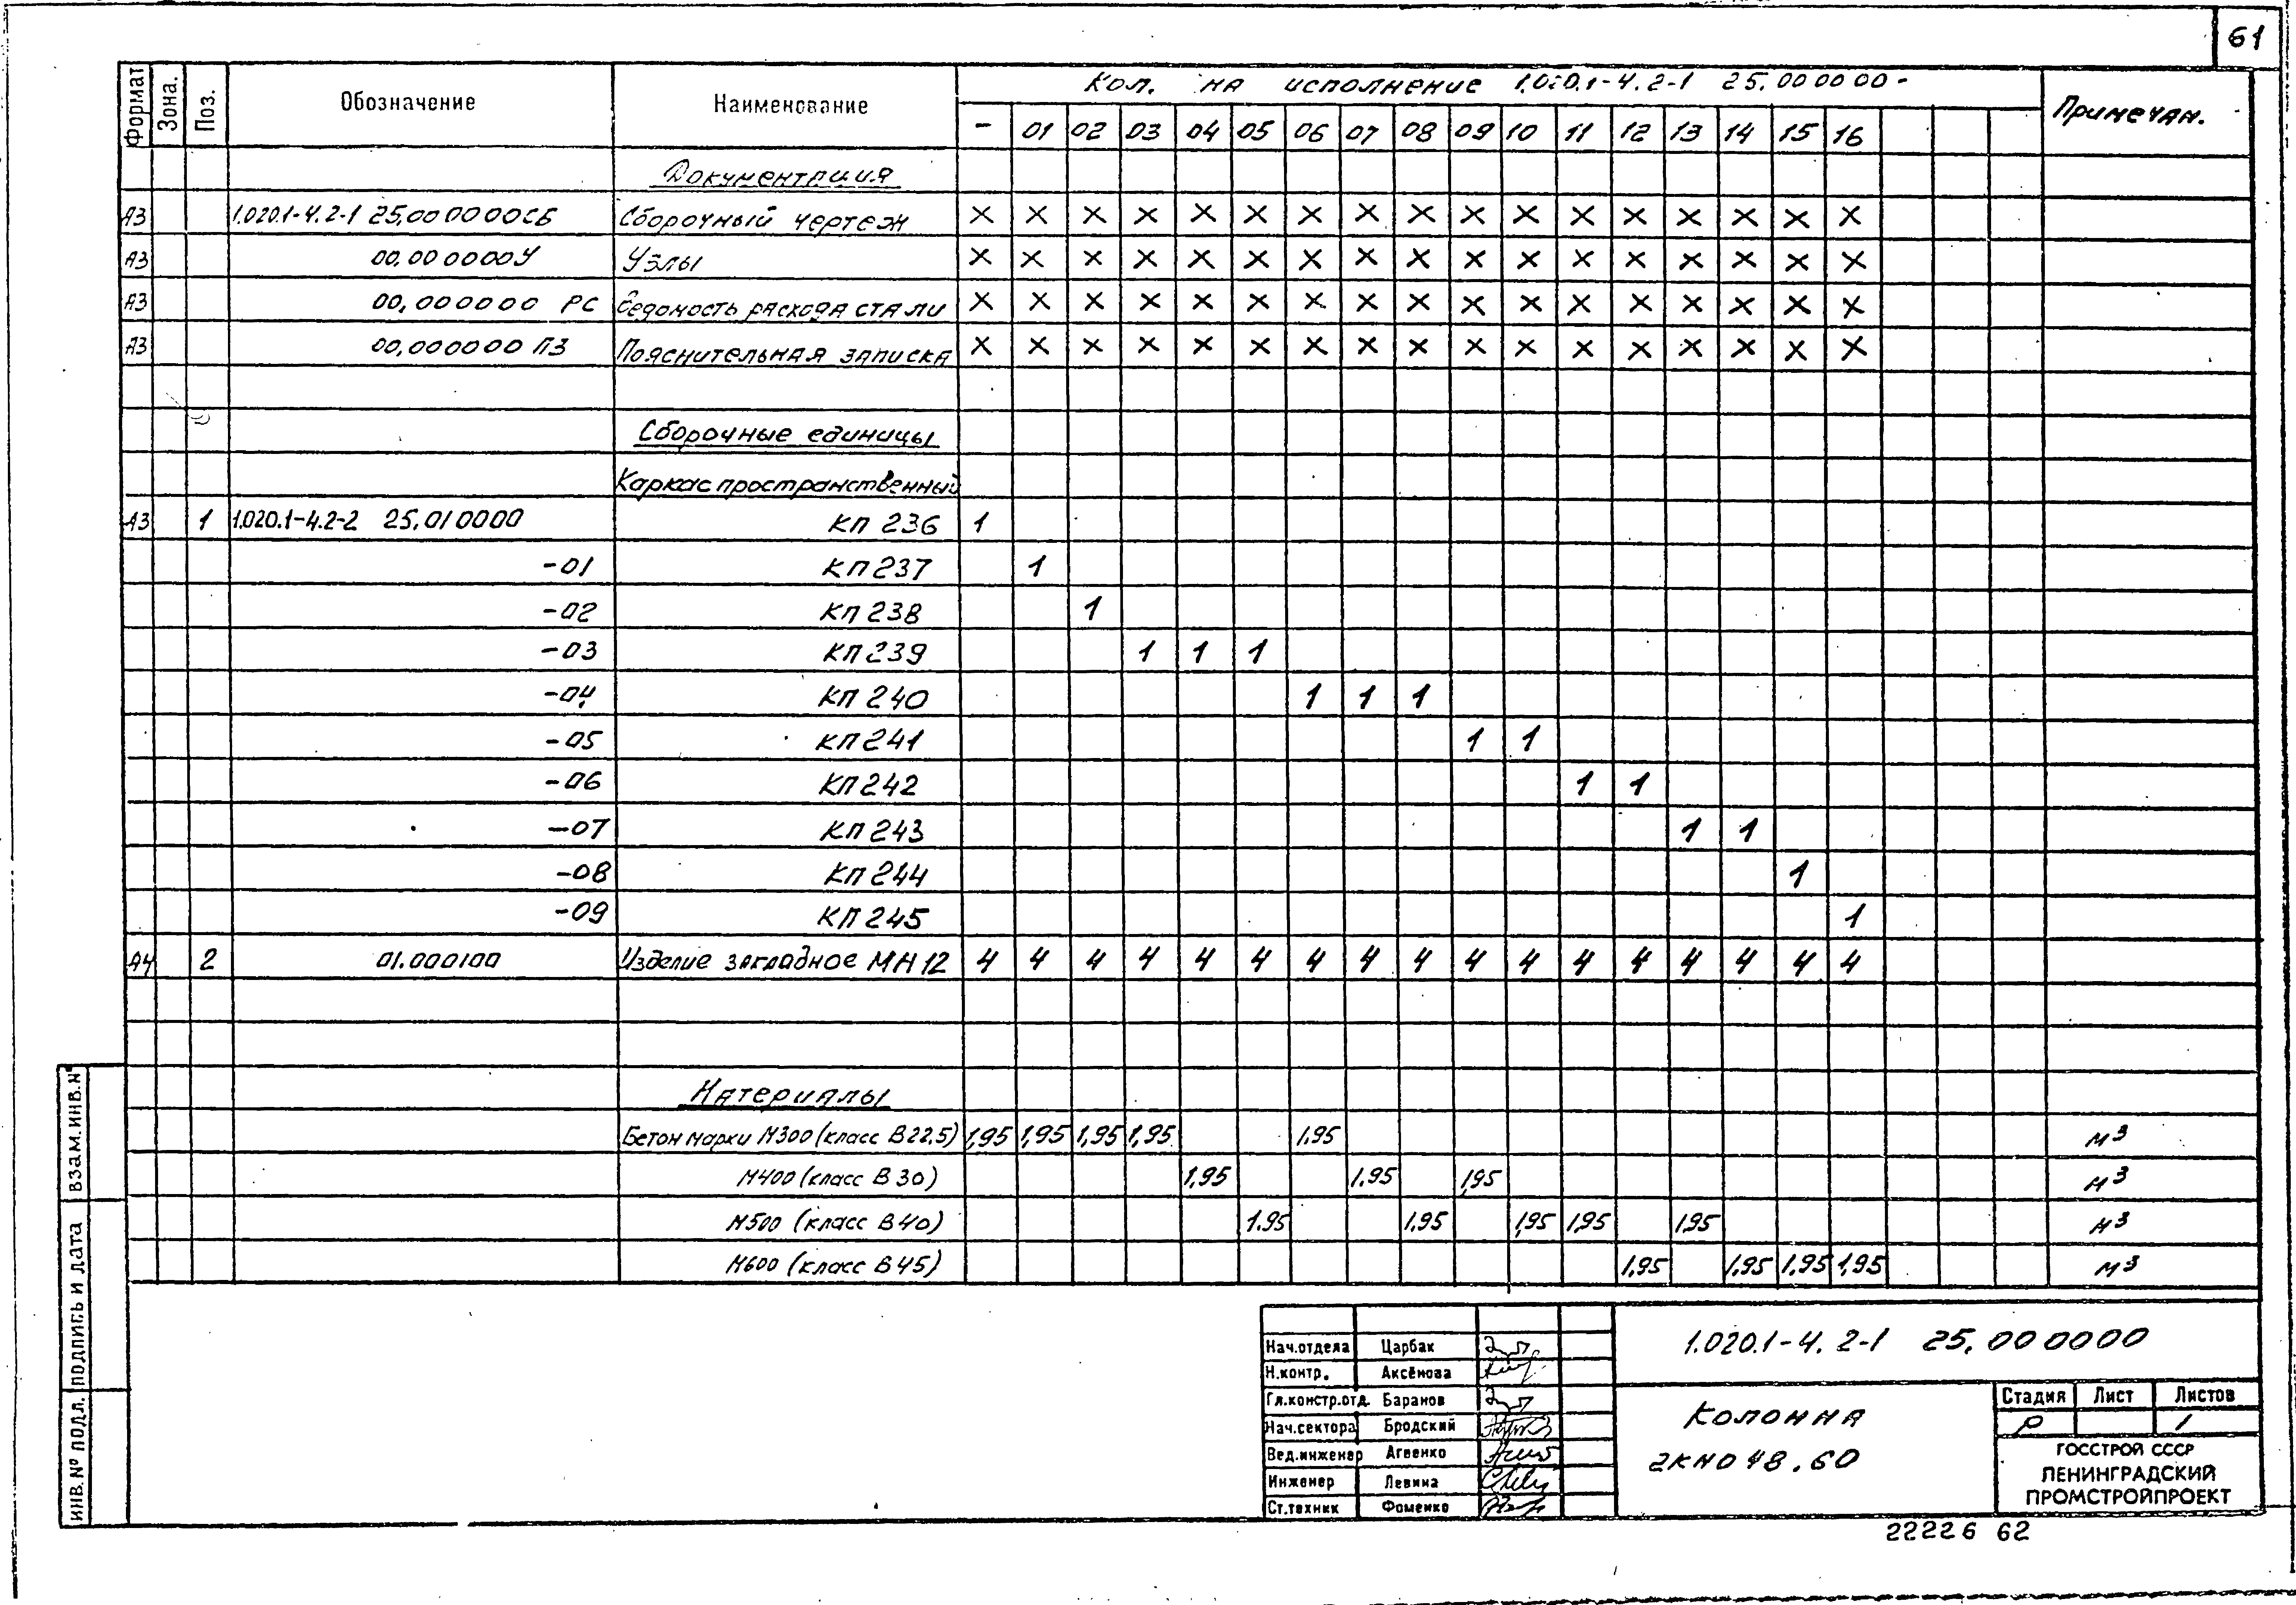 61
Формат Зона. Поз. Обозначение Наименование Кол. на исполнение 1.020.1-4.2-1 25.000000- Примечан.
- 01 02 03 04 05 06 07 08 09 10 11 12 13 14 15 16
Документация
А3 1.020.1-4.2-1 25.000000СБ Сборочный чертеж × × × × × × × × × × × × × × × × ×
А3 00.000000У Узлы × × × × × × × × × × × × × × × × ×
А3 00.000000 РС Ведомость расхода стали × × × × × × × × × × × × × × × × ×
А3 00.000000 ПЗ Пояснительная записка × × × × × × × × × × × × × × × × ×
Сборочные единицы
Каркас пространственный
А3 1 1.020.1-4.2-2 25.010000 КП 236 1
-01 КП 237 1
-02 КП 238 1
-03 КП 239 1 1 1
-04 КП 240 1 1 1
-05 КП 241 1 1
-06 КП 242 1 1
-07 КП 243 1 1
-08 КП 244 1
-09 КП 245 1
А4 2 01.000100 Изделие закладное МН 12 4 4 4 4 4 4 4 4 4 4 4 4 4 4 4 4 4
Материалы
Бетон марки М300 (класс В22,5) 1,95 1,95 1,95 1,95 1.95 м3
М400 (класс В 30) 1,95 1.95 1,95 м3
М500 (класс В40) 1.95 1,95 1,95 1,95 1,95 м3
М600 (класс В45) 1,95 1,95 1,95 1,95 м3
ИНВ.№ ПОДЛ. ПОДПИСЬ И ДАТА ВЗАМ.ИНВ.№
Нач.отдела Царбак
Н.контр. Аксёнова
Гл.констр.отд. Баранов
Нач.сектора Бродский
Вед.инженер Агеенко
Инженер Левина
Ст.техник Фоменко
1.020.1-4.2-1 25.000000
Колонна
2КНО 48.60
Стадия Лист Листов
Р 1
ГОССТРОЙ СССР
ЛЕНИНГРАДСКИЙ
ПРОМСТРОЙПРОЕКТ
22226 62